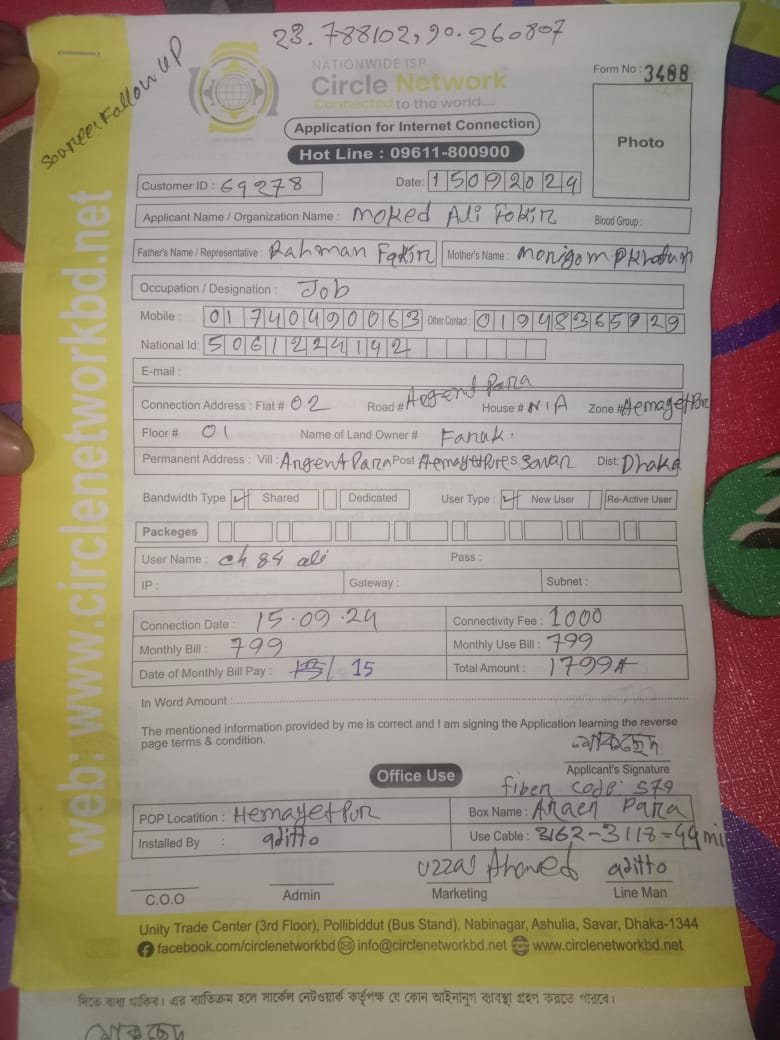 23.788102, 90.260807
Source: Follow UP
NATIONWIDE ISP
Circle Network
Connected to the world....
Form No : 3488
Photo
Application for Internet Connection
Hot Line : 09611-800900
Customer ID : 69278
Date: 15092024
Applicant Name / Organization Name : Moked Ali Fokir
Blood Group :
Father's Name / Representative : Rahman Fakir
Mother's Name :
Occupation / Designation : Job
Mobile : 01740490063
Other Contact : 01948365929
National Id: 5061224142
E-mail :
Connection Address : Flat # 02 Road # Argent Para House # N/A Zone # Hemayetpur
Floor # 01 Name of Land Owner # Faruk
Permanent Address : Vill : Argent Para Post Hemayetpur P.S. Savar Dist: Dhaka
Bandwidth Type ✓ Shared Dedicated User Type : ✓ New User Re-Active User
Packeges
User Name : ch 84 ali Pass :
IP : Gateway : Subnet :
Connection Date : 15.09.24 Connectivity Fee : 1000
Monthly Bill : 799 Monthly Use Bill : 799
Date of Monthly Bill Pay : 15 Total Amount : 1799#
In Word Amount :
The mentioned information provided by me is correct and I am signing the Application learning the reverse
page terms & condition.
মোকছেদ
Applicant's Signature
Office Use
fiber code: 579
POP Locatition : Hemayetpur Box Name : Para
Installed By : aditto Use Cable : 3162-3118=44 mi
Uzzal Ahmed aditto
C.O.O Admin Marketing Line Man
Unity Trade Center (3rd Floor), Pollibiddut (Bus Stand), Nabinagar, Ashulia, Savar, Dhaka-1344
facebook.com/circlenetworkbd info@circlenetworkbd.net www.circlenetworkbd.net
web: www.circlenetworkbd.net
দিতে বাধ্য থাকিব। এর ব্যতিক্রম হলে সার্কেল নেটওয়ার্ক কর্তৃপক্ষ যে কোন আইনানুগ ব্যবস্থা গ্রহণ করতে পারবে।
মোকছেদ